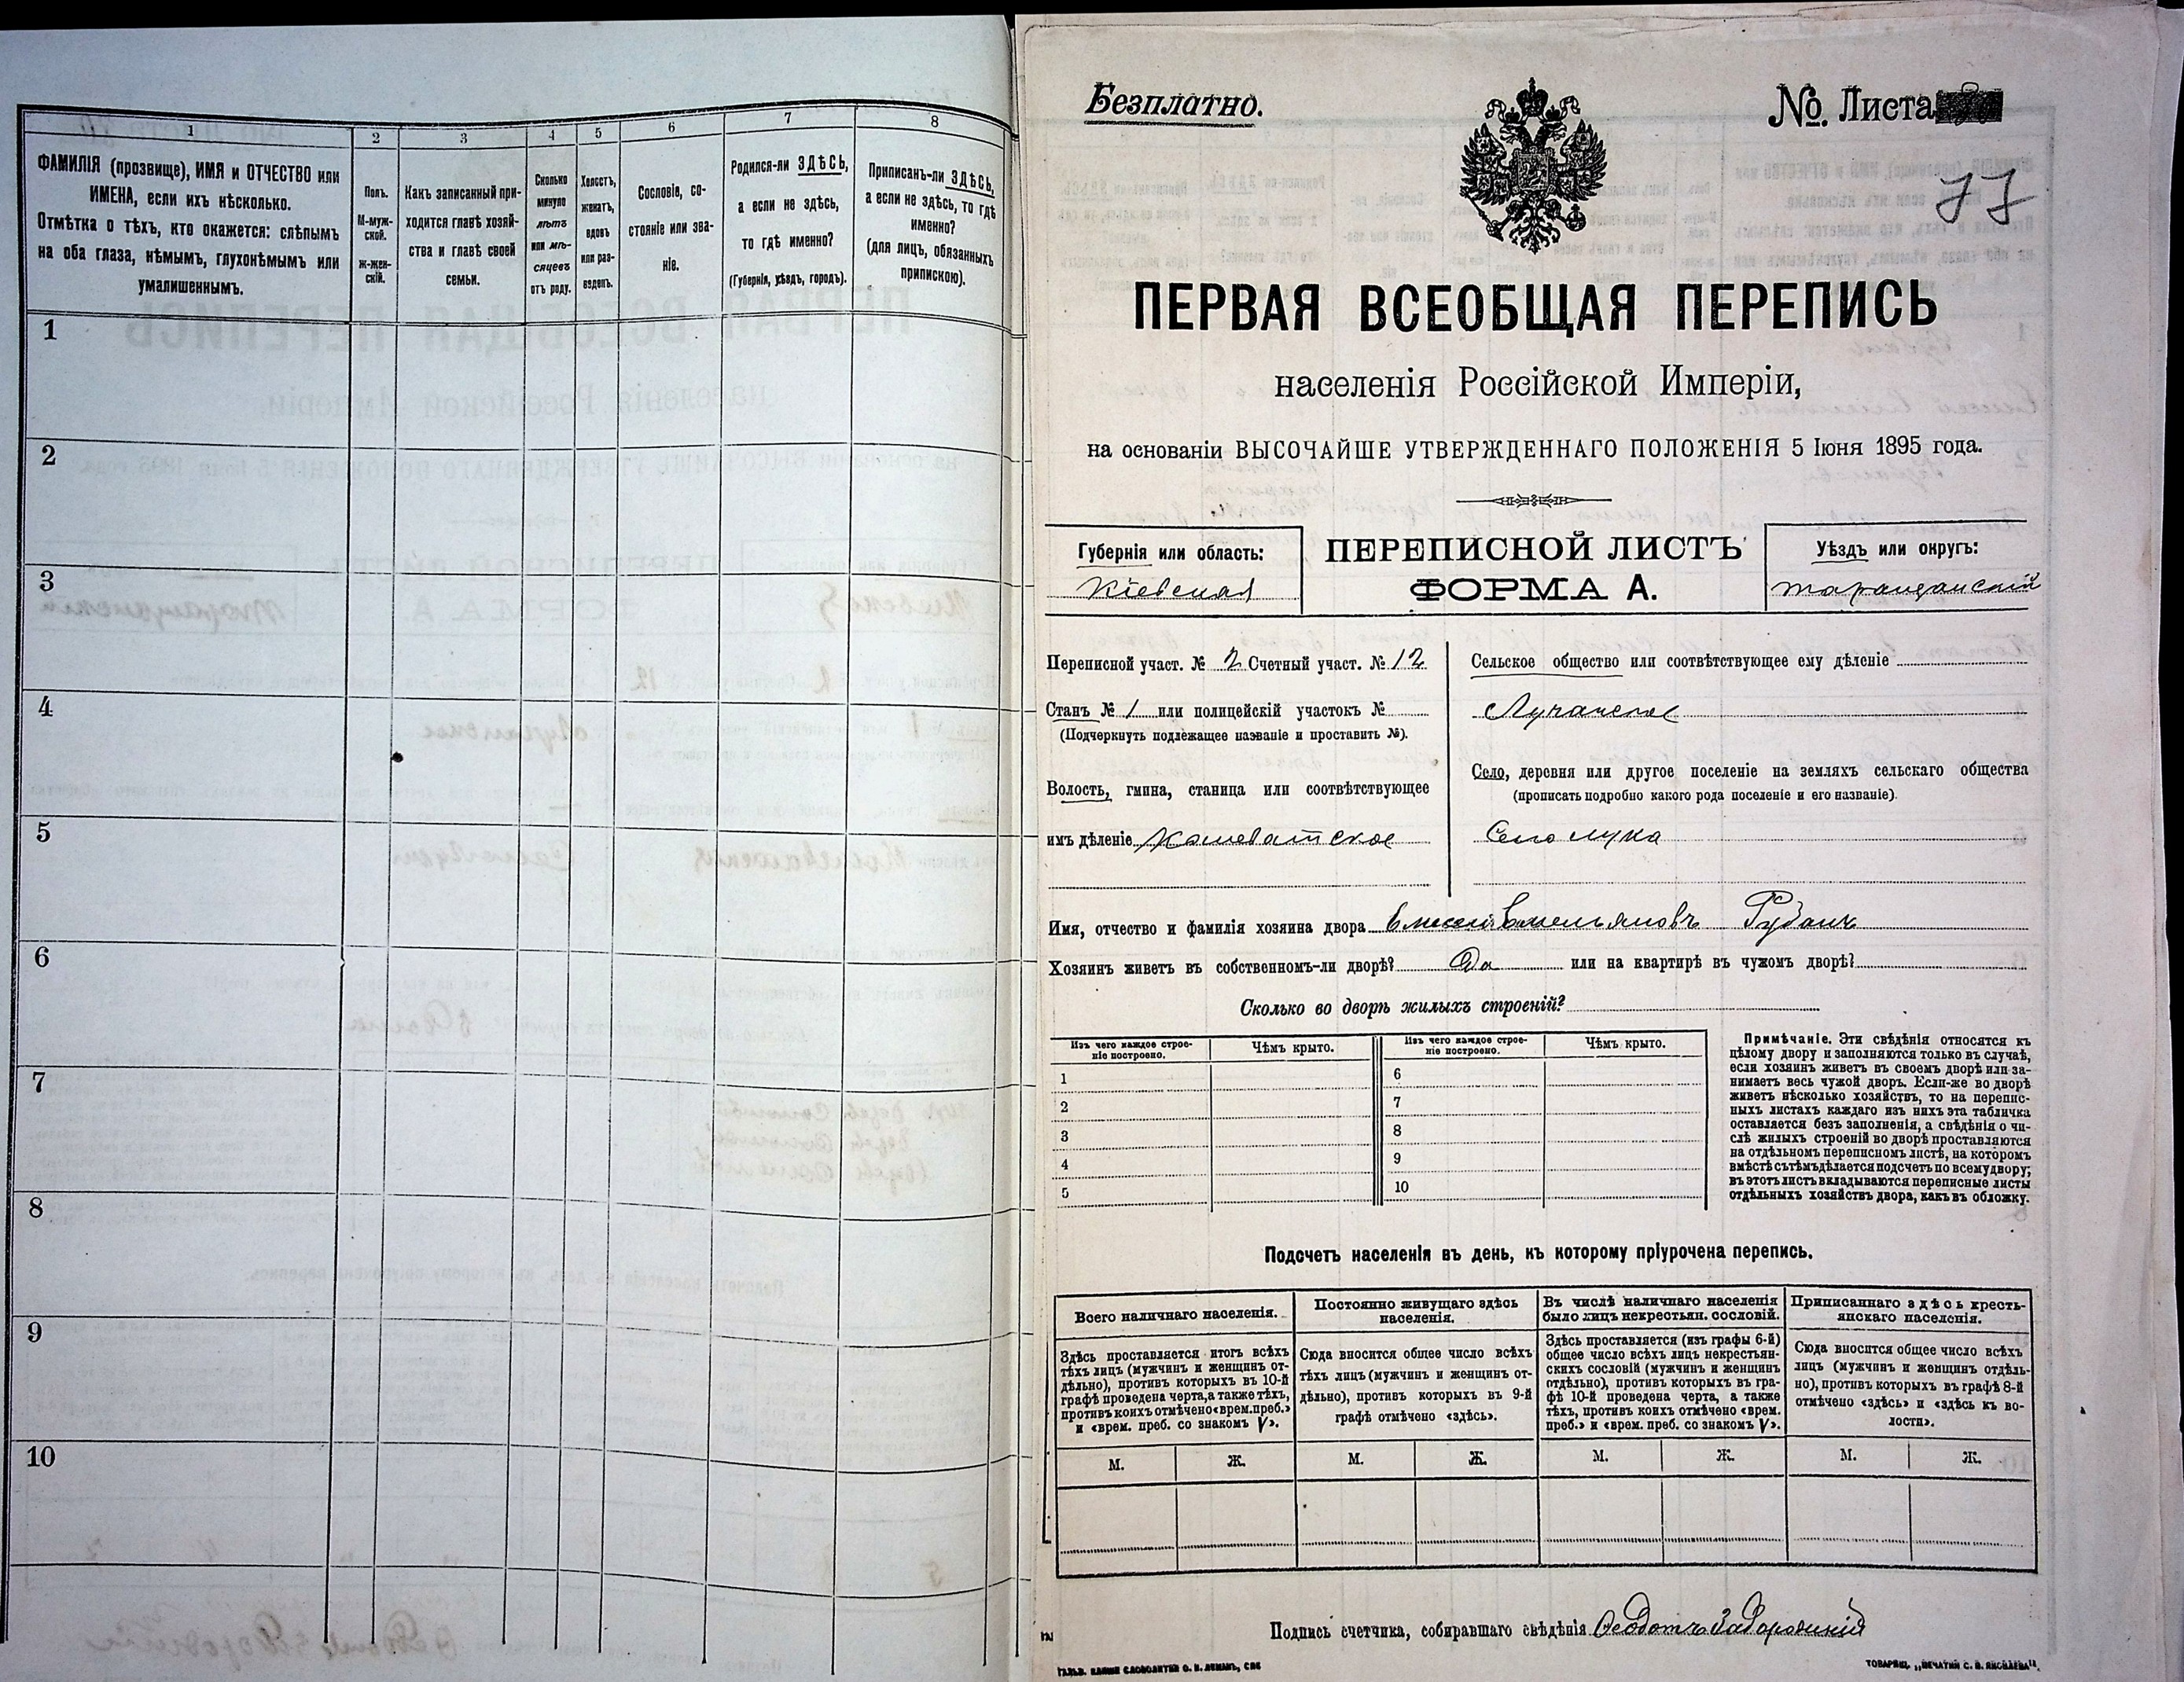 1
2
3
4
5
6
7
8
ФАМИЛІЯ (прозвище), ИМЯ и ОТЧЕСТВО или
ИМЕНА, если ихъ нѣсколько.
Отмѣтка о тѣхъ, кто окажется: слѣпымъ
на оба глаза, нѣмымъ, глухонѣмымъ или
умалишеннымъ.
Полъ.
М-муж-
ской.
Ж-жен-
скій.
Какъ записанный при-
ходится главѣ хозяй-
ства и главѣ своей
семьи.
Сколько
минуло
лѣтъ
или мѣ-
сяцевъ
отъ роду.
Холостъ,
женатъ,
вдовъ
или раз-
веденъ.
Сословіе, со-
стояніе или зва-
ніе.
Родился-ли ЗДѢСЬ,
а если не здѣсь,
то гдѣ именно?
(Губернія, уѣздъ, городъ).
Приписанъ-ли ЗДѢСЬ,
а если не здѣсь, то гдѣ
именно?
(для лицъ, обязанныхъ
припискою).
1
2
3
4
5
6
7
8
9
10
Безплатно.
№. Листа
77
ПЕРВАЯ ВСЕОБЩАЯ ПЕРЕПИСЬ
населенія Россійской Имперіи,
на основаніи ВЫСОЧАЙШЕ УТВЕРЖДЕННАГО ПОЛОЖЕНІЯ 5 Іюня 1895 года.
Губернія или область:
Кіевская
ПЕРЕПИСНОЙ ЛИСТЪ
ФОРМА А.
Уѣздъ или округъ:
Таращанскій
Переписной участ. № 2 Счетный участ. № 12
Станъ № 1 или полицейскій участокъ №
(Подчеркнуть подлежащее названіе и проставить №).
Волость, гмина, станица или соотвѣтствующее
имъ дѣленіе Кошеватское
Сельское общество или соотвѣтствующее ему дѣленіе
Лучанское
Село, деревня или другое поселеніе на земляхъ сельскаго общества
(прописать подробно какого рода поселеніе и его названіе).
Село Лука
Имя, отчество и фамилія хозяина двора Емельяновъ Рубанъ
Хозяинъ живетъ въ собственномъ-ли дворѣ? Да или на квартирѣ въ чужомъ дворѣ?
Сколько во дворѣ жилыхъ строеній?
Изъ чего каждое строе-
ніе построено.
Чѣмъ крыто.
Изъ чего каждое строе-
ніе построено.
Чѣмъ крыто.
1
2
3
4
5
6
7
8
9
10
Примѣчаніе. Эти свѣдѣнія относятся къ
цѣлому двору и заполняются только въ случаѣ,
если хозяинъ живетъ въ своемъ дворѣ или за-
нимаетъ весь чужой дворъ. Если-же во дворѣ
живетъ нѣсколько хозяйствъ, то на перепис-
ныхъ листахъ каждаго изъ нихъ эта табличка
оставляется безъ заполненія, а свѣдѣнія о чи-
слѣ жилыхъ строеній во дворѣ проставляются
на отдѣльномъ переписномъ листѣ, на которомъ
вмѣстѣ съ тѣмъ дѣлается подсчетъ по всему двору;
въ этотъ листъ вкладываются переписные листы
отдѣльныхъ хозяйствъ двора, какъ въ обложку.
Подсчетъ населенія въ день, къ которому пріурочена перепись.
Всего наличнаго населенія.
Здѣсь проставляется итогъ всѣхъ
тѣхъ лицъ (мужчинъ и женщинъ от-
дѣльно), противъ которыхъ въ 10-й
графѣ проведена черта, а также тѣхъ,
противъ коихъ отмѣчено «врем. преб.»
и «врем. преб. со знакомъ V».
Постоянно живущаго здѣсь
населенія.
Сюда вносится общее число всѣхъ
тѣхъ лицъ (мужчинъ и женщинъ от-
дѣльно), противъ которыхъ въ 9-й
графѣ отмѣчено «здѣсь».
Въ числѣ наличнаго населенія
было лицъ некрестьян. сословій.
Здѣсь проставляется (изъ графы 6-й)
общее число всѣхъ лицъ некрестьян-
скихъ сословій (мужчинъ и женщинъ
отдѣльно), противъ которыхъ въ гра-
фѣ 10-й проведена черта, а также
тѣхъ, противъ коихъ отмѣчено «врем.
преб.» и «врем. преб. со знакомъ V».
Приписаннаго здѣсь кресть-
янскаго населенія.
Сюда вносится общее число всѣхъ
лицъ (мужчинъ и женщинъ отдѣль-
но), противъ которыхъ въ графѣ 8-й
отмѣчено «здѣсь» и «здѣсь къ во-
лости».
М.
Ж.
М.
Ж.
М.
Ж.
М.
Ж.
Подпись счетчика, собиравшаго свѣдѣнія Ѳеодотъ Задорожній
ТОВАРИЩ. „ПЕЧАТНИ С. П. ЯКОВЛЕВА“.